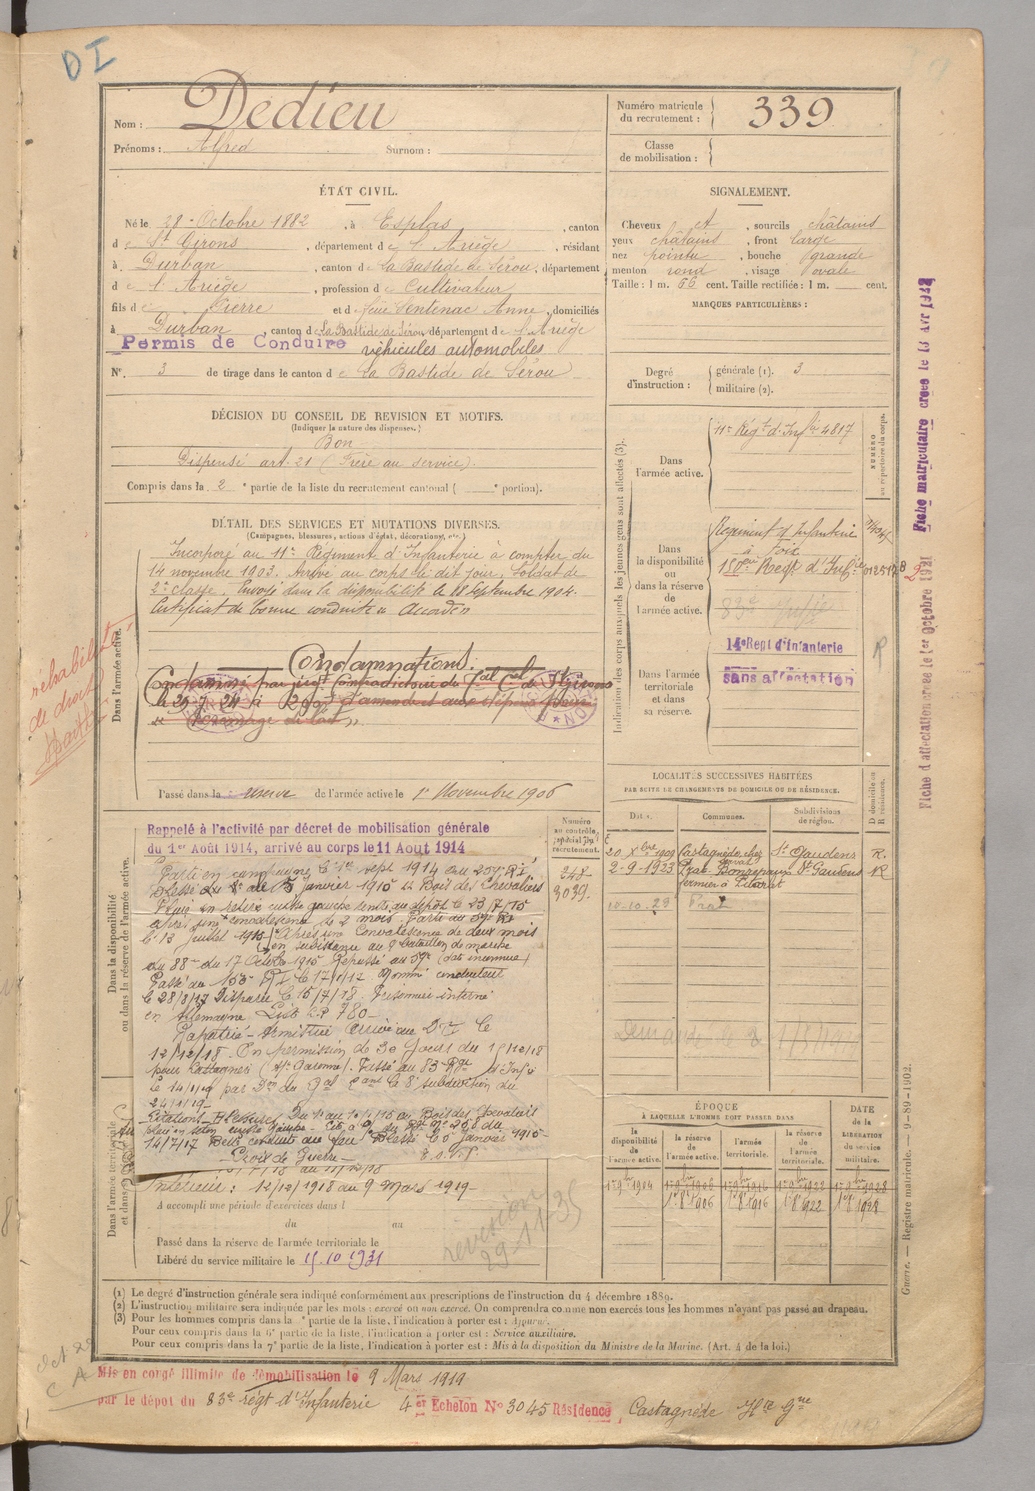 DI
Nom : Dedieu
Prénoms : Alfred Surnom :
Numéro matricule du recrutement : 339
Classe de mobilisation :
ÉTAT CIVIL.
Né le 28 Octobre 1882, à Esplas, canton
de St Girons, département de l'Ariège, résidant
à Durban, canton de La Bastide de Sérou, département
de l'Ariège, profession de Cultivateur
fils de Pierre et de feue Sentenac Anne, domiciliés
à Durban, canton de La Bastide de Sérou département de l'Ariège
Permis de Conduire véhicules automobiles
N°. 3 de tirage dans le canton de La Bastide de Sérou
SIGNALEMENT.
Cheveux et, sourcils châtains
yeux châtains, front large
nez pointu, bouche grande
menton rond, visage ovale
Taille : 1 m. 66 cent. Taille rectifiée : 1 m. cent.
MARQUES PARTICULIÈRES :
Degré d'instruction : générale (1). 3
militaire (2).
DÉCISION DU CONSEIL DE REVISION ET MOTIFS.
(Indiquer la nature des dispenses.)
Bon
Dispensé art. 21 (Frère au service).
Compris dans la 2e partie de la liste du recrutement cantonal ( e portion).
DÉTAIL DES SERVICES ET MUTATIONS DIVERSES.
(Campagnes, blessures, actions d'éclat, décorations, etc.)
Dans l'armée active.
Incorporé au 11e Régiment d'Infanterie à compter du
14 novembre 1903. Arrivé au corps le dit jour. Soldat de
2e classe. Envoyé dans la disponibilité le 18 septembre 1904.
Certificat de bonne conduite Accordé
Condamnations.
réhabilité
de droit
Passé dans la réserve de l'armée active le 1er Novembre 1906
Indication des corps auxquels les jeunes gens sont affectés (3).
NUMÉRO au répertoire du corps.
Dans l'armée active.
11e Régt d'Infie 4817
Dans la disponibilité ou dans la réserve de l'armée active.
Régiment d'Infanterie
à Foix
Dans l'armée territoriale et dans sa réserve.
14e Regt d'Infanterie
sans affectation
R
Fiche matriculaire créée le
Fiche d'affectation créée le 1er Octobre 1921
LOCALITÉS SUCCESSIVES HABITÉES
PAR SUITE DE CHANGEMENTS DE DOMICILE OU DE RÉSIDENCE.
Dates. Communes. Subdivisions de région. D domicile ou R résidence.
20 Xbre 1909 Castagnède, chez St Gaudens R.
2-9-1923 Prat Bonrepaux St Gaudens R
10-10-29 Prat
Dans la disponibilité ou dans la réserve de l'armée active.
Numéro au contrôle spécial du recrutement.
248
3039.
Rappelé à l'activité par décret de mobilisation générale
du 1er Août 1914, arrivé au corps le 11 Aout 1914
Parti en campagne le 1er sept 1914 au 259e RI
Blessé du 1er au 5 janvier 1915 au Bois des Chevaliers
Plaie en séton cuisse gauche rentré au dépôt le 23/7/15
après une convalescence de 2 mois. Parti au 59e RI
le 13 juillet 1915 Après une Convalescence de deux mois
en subsistance au 9e bataillon de marche
du 88e du 17 Octobre 1915 Repassé au 59e (date inconnue)
Passé au 153e RI le 17/1/12 Nommé conducteur
le 28/8/17 Disparu le 15/7/18. Prisonnier interné
en Allemagne Liste L.P 780-
Rapatrié - Armistice arrivé au DTI le
12/12/18. En permission de 30 jours du 15/12/18
pour Castagnède (Hte Garonne). Passé au 83e Rgt d'Infie
le 14/1/19 par Don du Gal Cant la 8e subdivision du
24/1/19-
Citations - Blessures
14/7/17 Belle conduite au feu Blessé le 5 janvier 1915-
Croix de Guerre-
Intérieur : 12/12/1918 au 9 Mars 1919-
Dans l'armée territoriale et dans sa réserve.
A accompli une période d'exercices dans l
du au
Passé dans la réserve de l'armée territoriale le
Libéré du service militaire le 15.10.1931
révision
29-11-35
ÉPOQUE
À LAQUELLE L'HOMME DOIT PASSER DANS
la disponibilité de l'armée active.
la réserve de l'armée active.
l'armée territoriale.
la réserve de l'armée territoriale.
DATE de la LIBÉRATION du service militaire.
1er 9bre 1904 1er 9bre 1906 1er 9bre 1916 1er 9bre 1922 1er 9bre 1928
1er 8bre 1906 1er 8bre 1916 1er 8bre 1922 1er 8bre 1928
(1) Le degré d'instruction générale sera indiqué conformément aux prescriptions de l'instruction du 4 décembre 1889.
(2) L'instruction militaire sera indiquée par les mots : exercé ou non exercé. On comprendra comme non exercés tous les hommes n'ayant pas passé au drapeau.
(3) Pour les hommes compris dans la e partie de la liste, l'indication à porter est : Ajourné.
Pour ceux compris dans la 6e partie de la liste, l'indication à porter est : Service auxiliaire.
Pour ceux compris dans la 7e partie de la liste, l'indication à porter est : Mis à la disposition du Ministre de la Marine. (Art. 4 de la loi.)
Guerre. — Registre matricule. — 9-89-1902.
Mis en congé illimité de démobilisation le 9 Mars 1919
par le dépôt du 83e régt d'Infanterie 4er Echelon No 3045 Résidence Castagnède Hte Gne